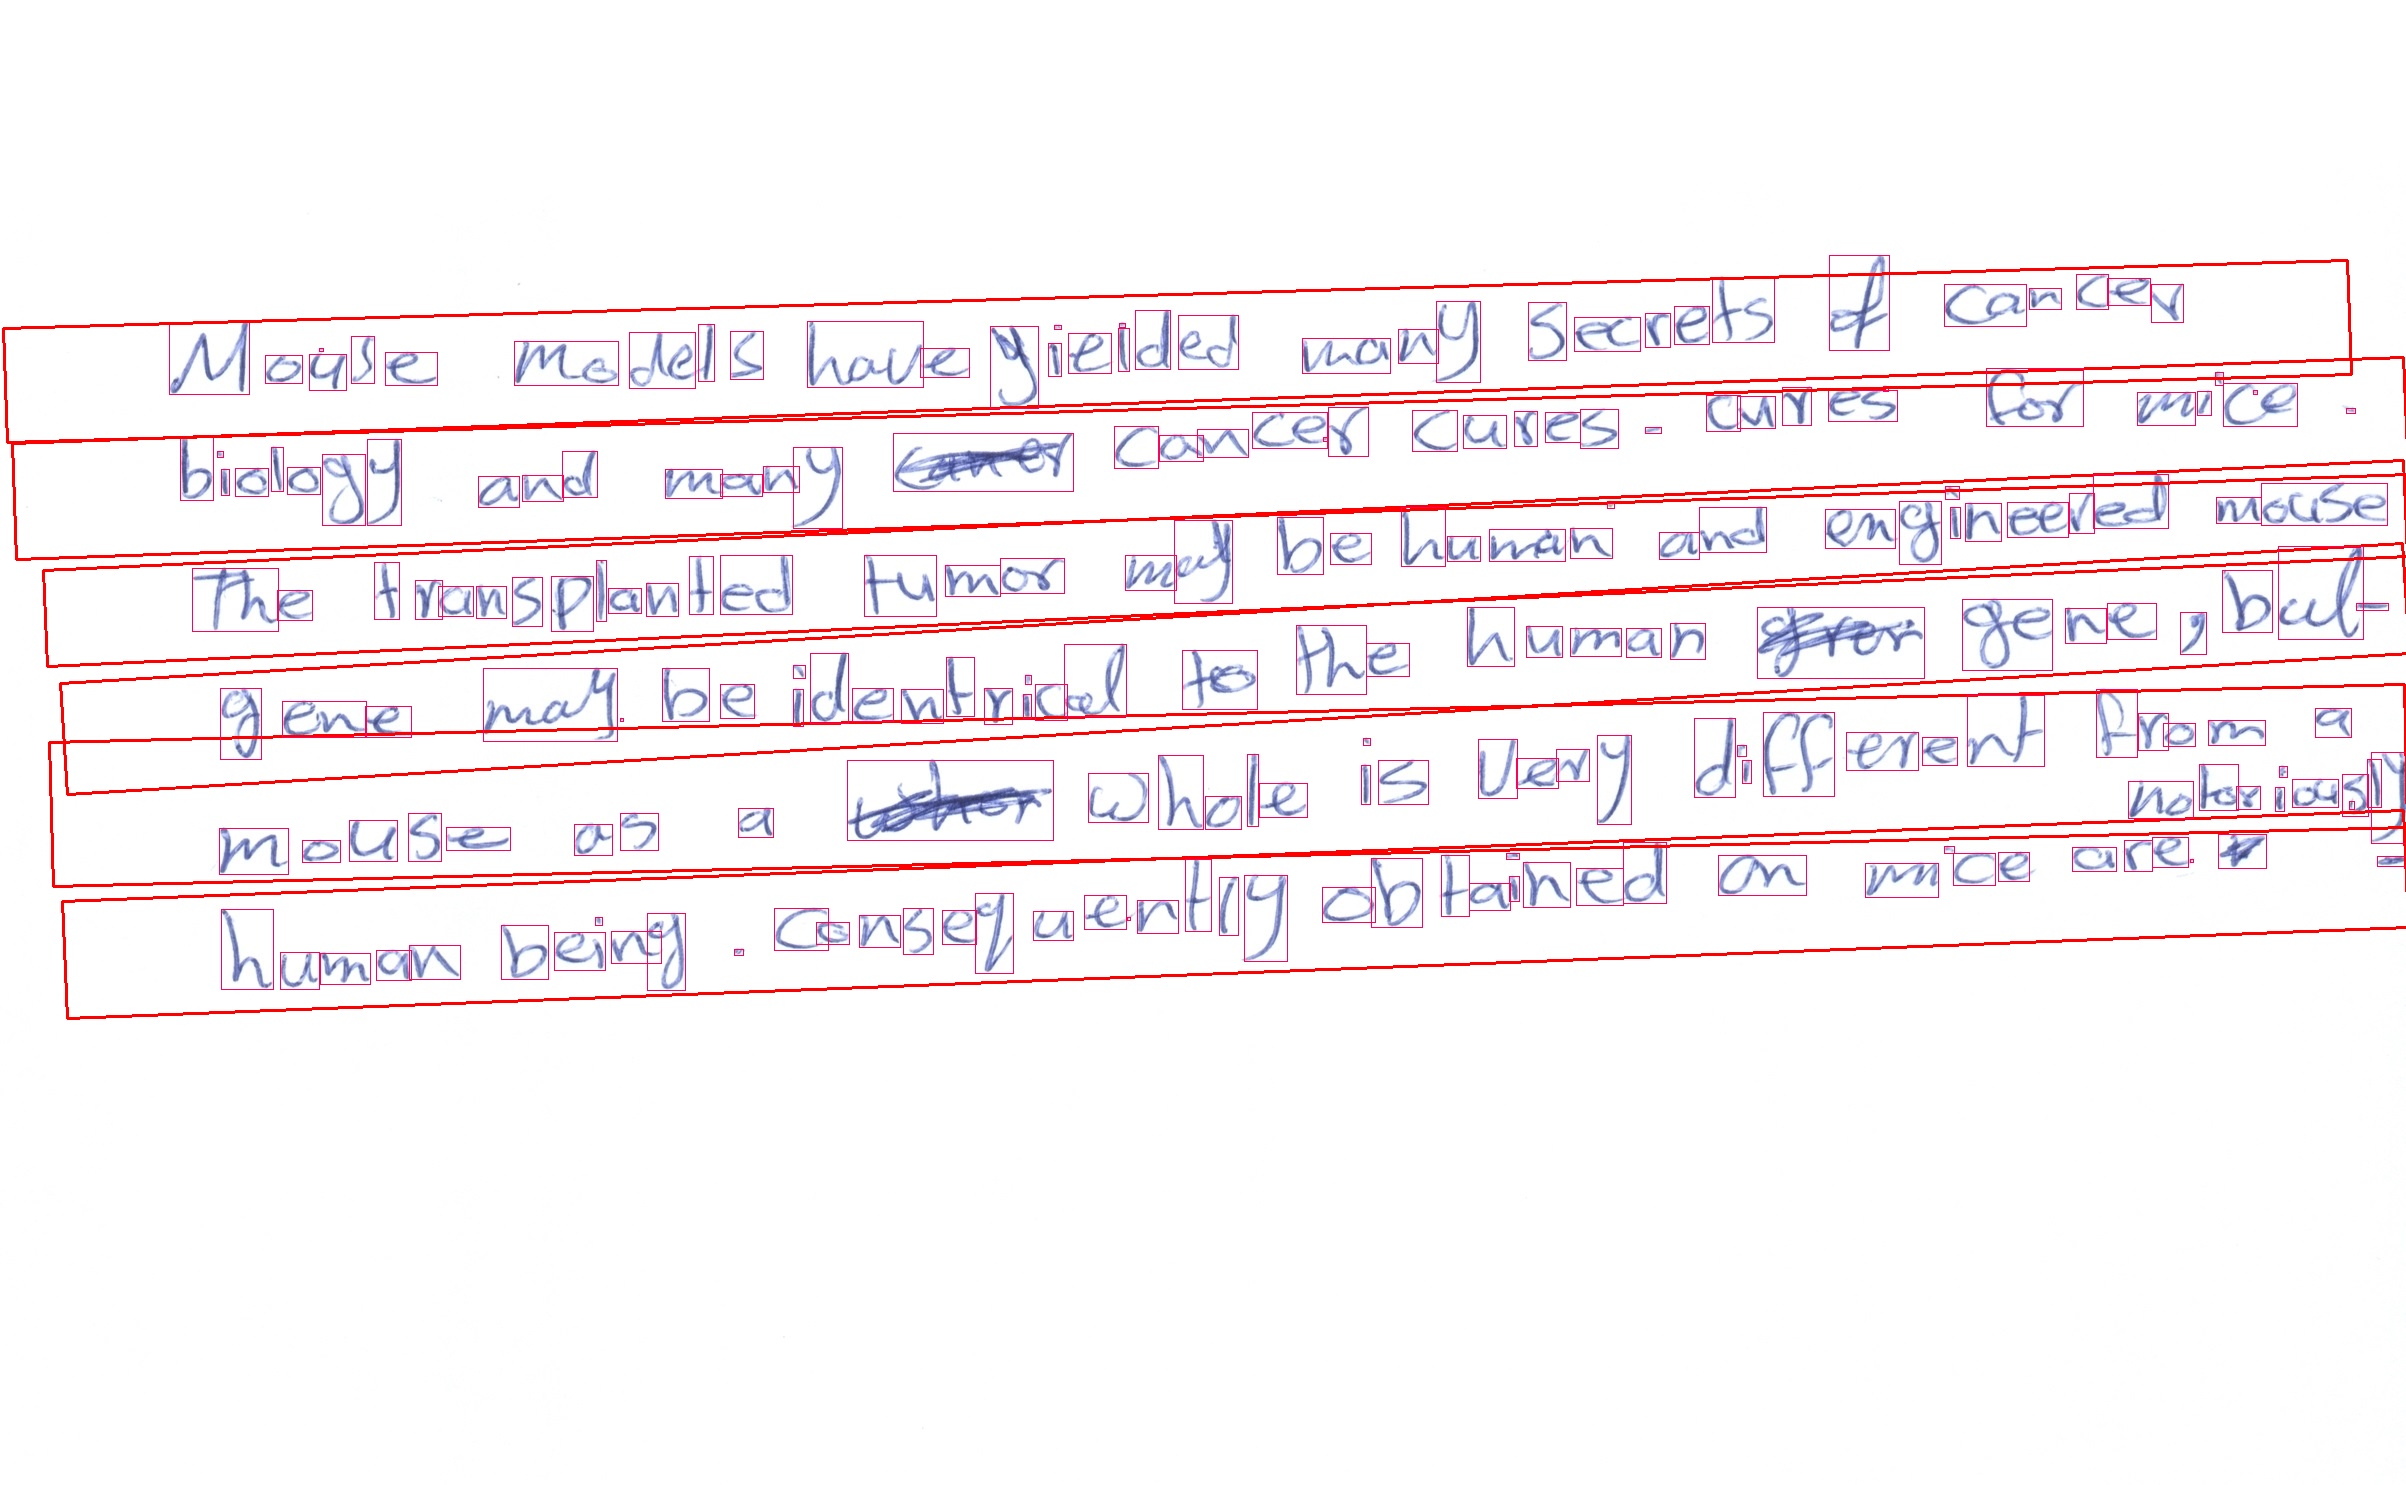 Mouse models have yieided many secrets of cancer
biology and many cancer cures - cures for mice .
The transplanted tumor may be human and engineered mouse
gene may be identrical to the human gene , but-
mouse as a whole is very different from a
notoriously
human being . Consequently obtained on mice are -